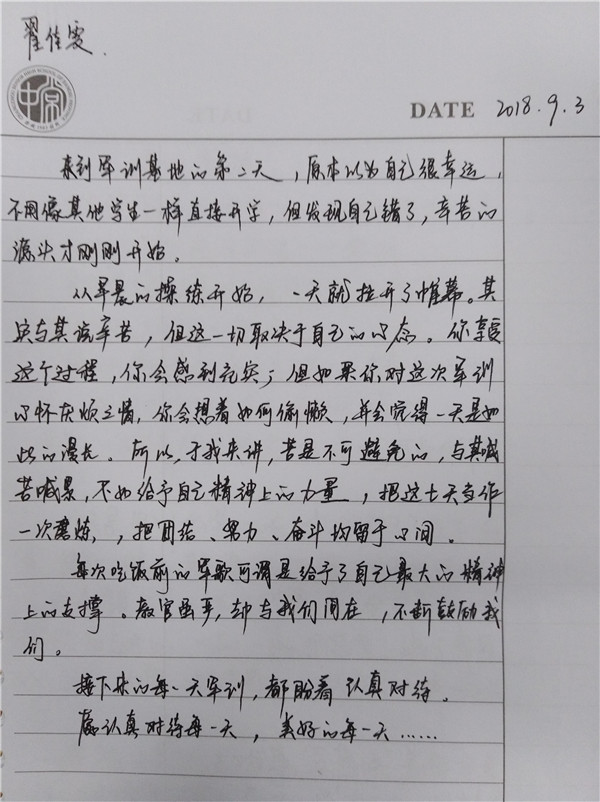 翟佳雯
中常
DATE 2018.9.3
来到军训基地的第二天，原本以为自己很幸运，
不用像其他学生一样直接开学，但发现自己错了，辛苦的
源头才刚刚开始。
从早晨的操练开始，一天就拉开了帷幕。其
实与其说辛苦，但这一切取决于自己的心态。你享受
这个过程，你会感到充实；但如果你对这次军训
心怀厌烦之情，你会想着如何偷懒，并会觉得一天是如
此的漫长。所以，于我来讲，苦是不可避免的，与其喊
苦喊累，不如给予自己精神上的力量，把这七天当作
一次磨炼，，把团结、努力、奋斗均留于心间。
每次吃饭前的军歌可谓是给予了自己最大的精神
上的支撑。教官虽严，却与我们同在，不断鼓励我
们。
接下来的每一天军训，都盼着认真对待。
认真对待每一天，美好的每一天……